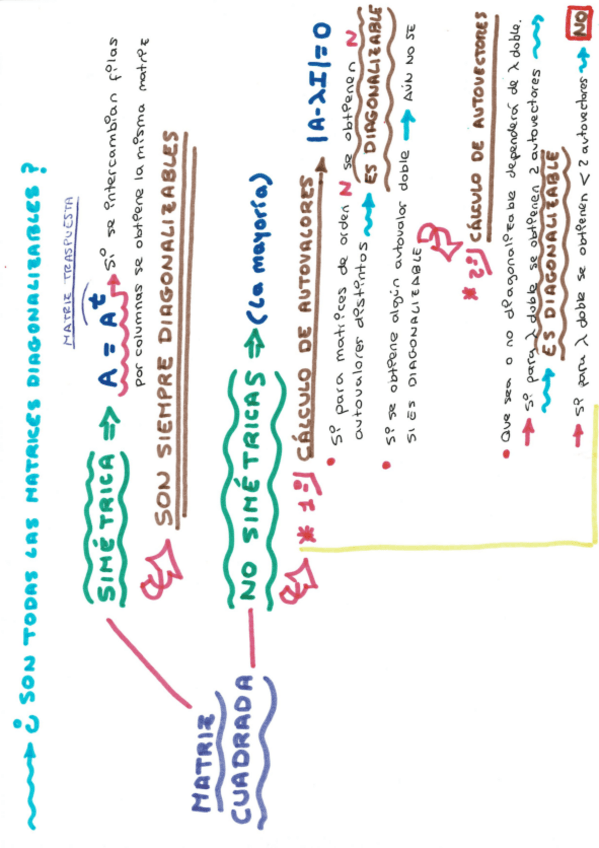 ¿ SON TODAS LAS MATRICES DIAGONALIZABLES ?
MATRIZ TRASPUESTA
MATRIZ
CUADRADA
SIMÉTRICA ⇒ A = Aᵗ → Si se intercambian filas
por columnas se obtiene la misma matriz
SON SIEMPRE DIAGONALIZABLES
NO SIMÉTRICAS ⇒ (La mayoría)
* 1º- CÁLCULO DE AUTOVALORES → |A-λI|=0
• Si para matrices de orden N se obtienen N
autovalores distintos → ES DIAGONALIZABLE
• Si se obtiene algún autovalor doble → AÚN NO SE
SI ES DIAGONALIZABLE
* 2º- CÁLCULO DE AUTOVECTORES
• Que sea o no diagonalizable dependerá de λ doble.
→ Si para λ doble se obtienen 2 autovectores →
→ ES DIAGONALIZABLE
→ Si para λ doble se obtienen < 2 autovectores → NO